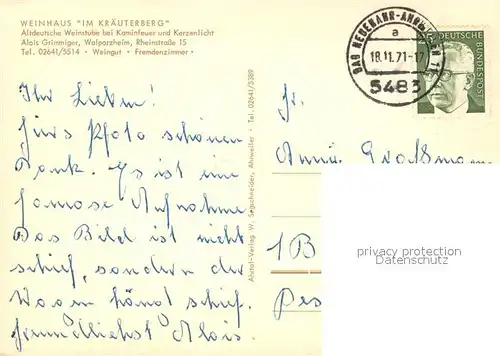 WEINHAUS "IM KRÄUTERBERG"
Altdeutsche Weinstube bei Kaminfeuer und Kerzenlicht
Alois Grimmiger, Walporzheim, Rheinstraße 15
Tel. 02641/5514 • Weingut • Fremdenzimmer •
BAD NEUENAHR-AHRWEILER 1
a
18.11.71-17
5483
DEUTSCHE
BUNDESPOST
Ihr Lieben!
Fürs Photo schönen
Dank. Es ist eine
famose Aufnahme
Das Bild ist nicht
schief, sondern der
Wagen hängt schief.
freundlichst Alois.
Ahrtal-Verlag W. Segschneider, Ahrweiler • Tel. 02641/5389
Fr.
Anni Großmann
1 B
privacy protection
Datenschutz